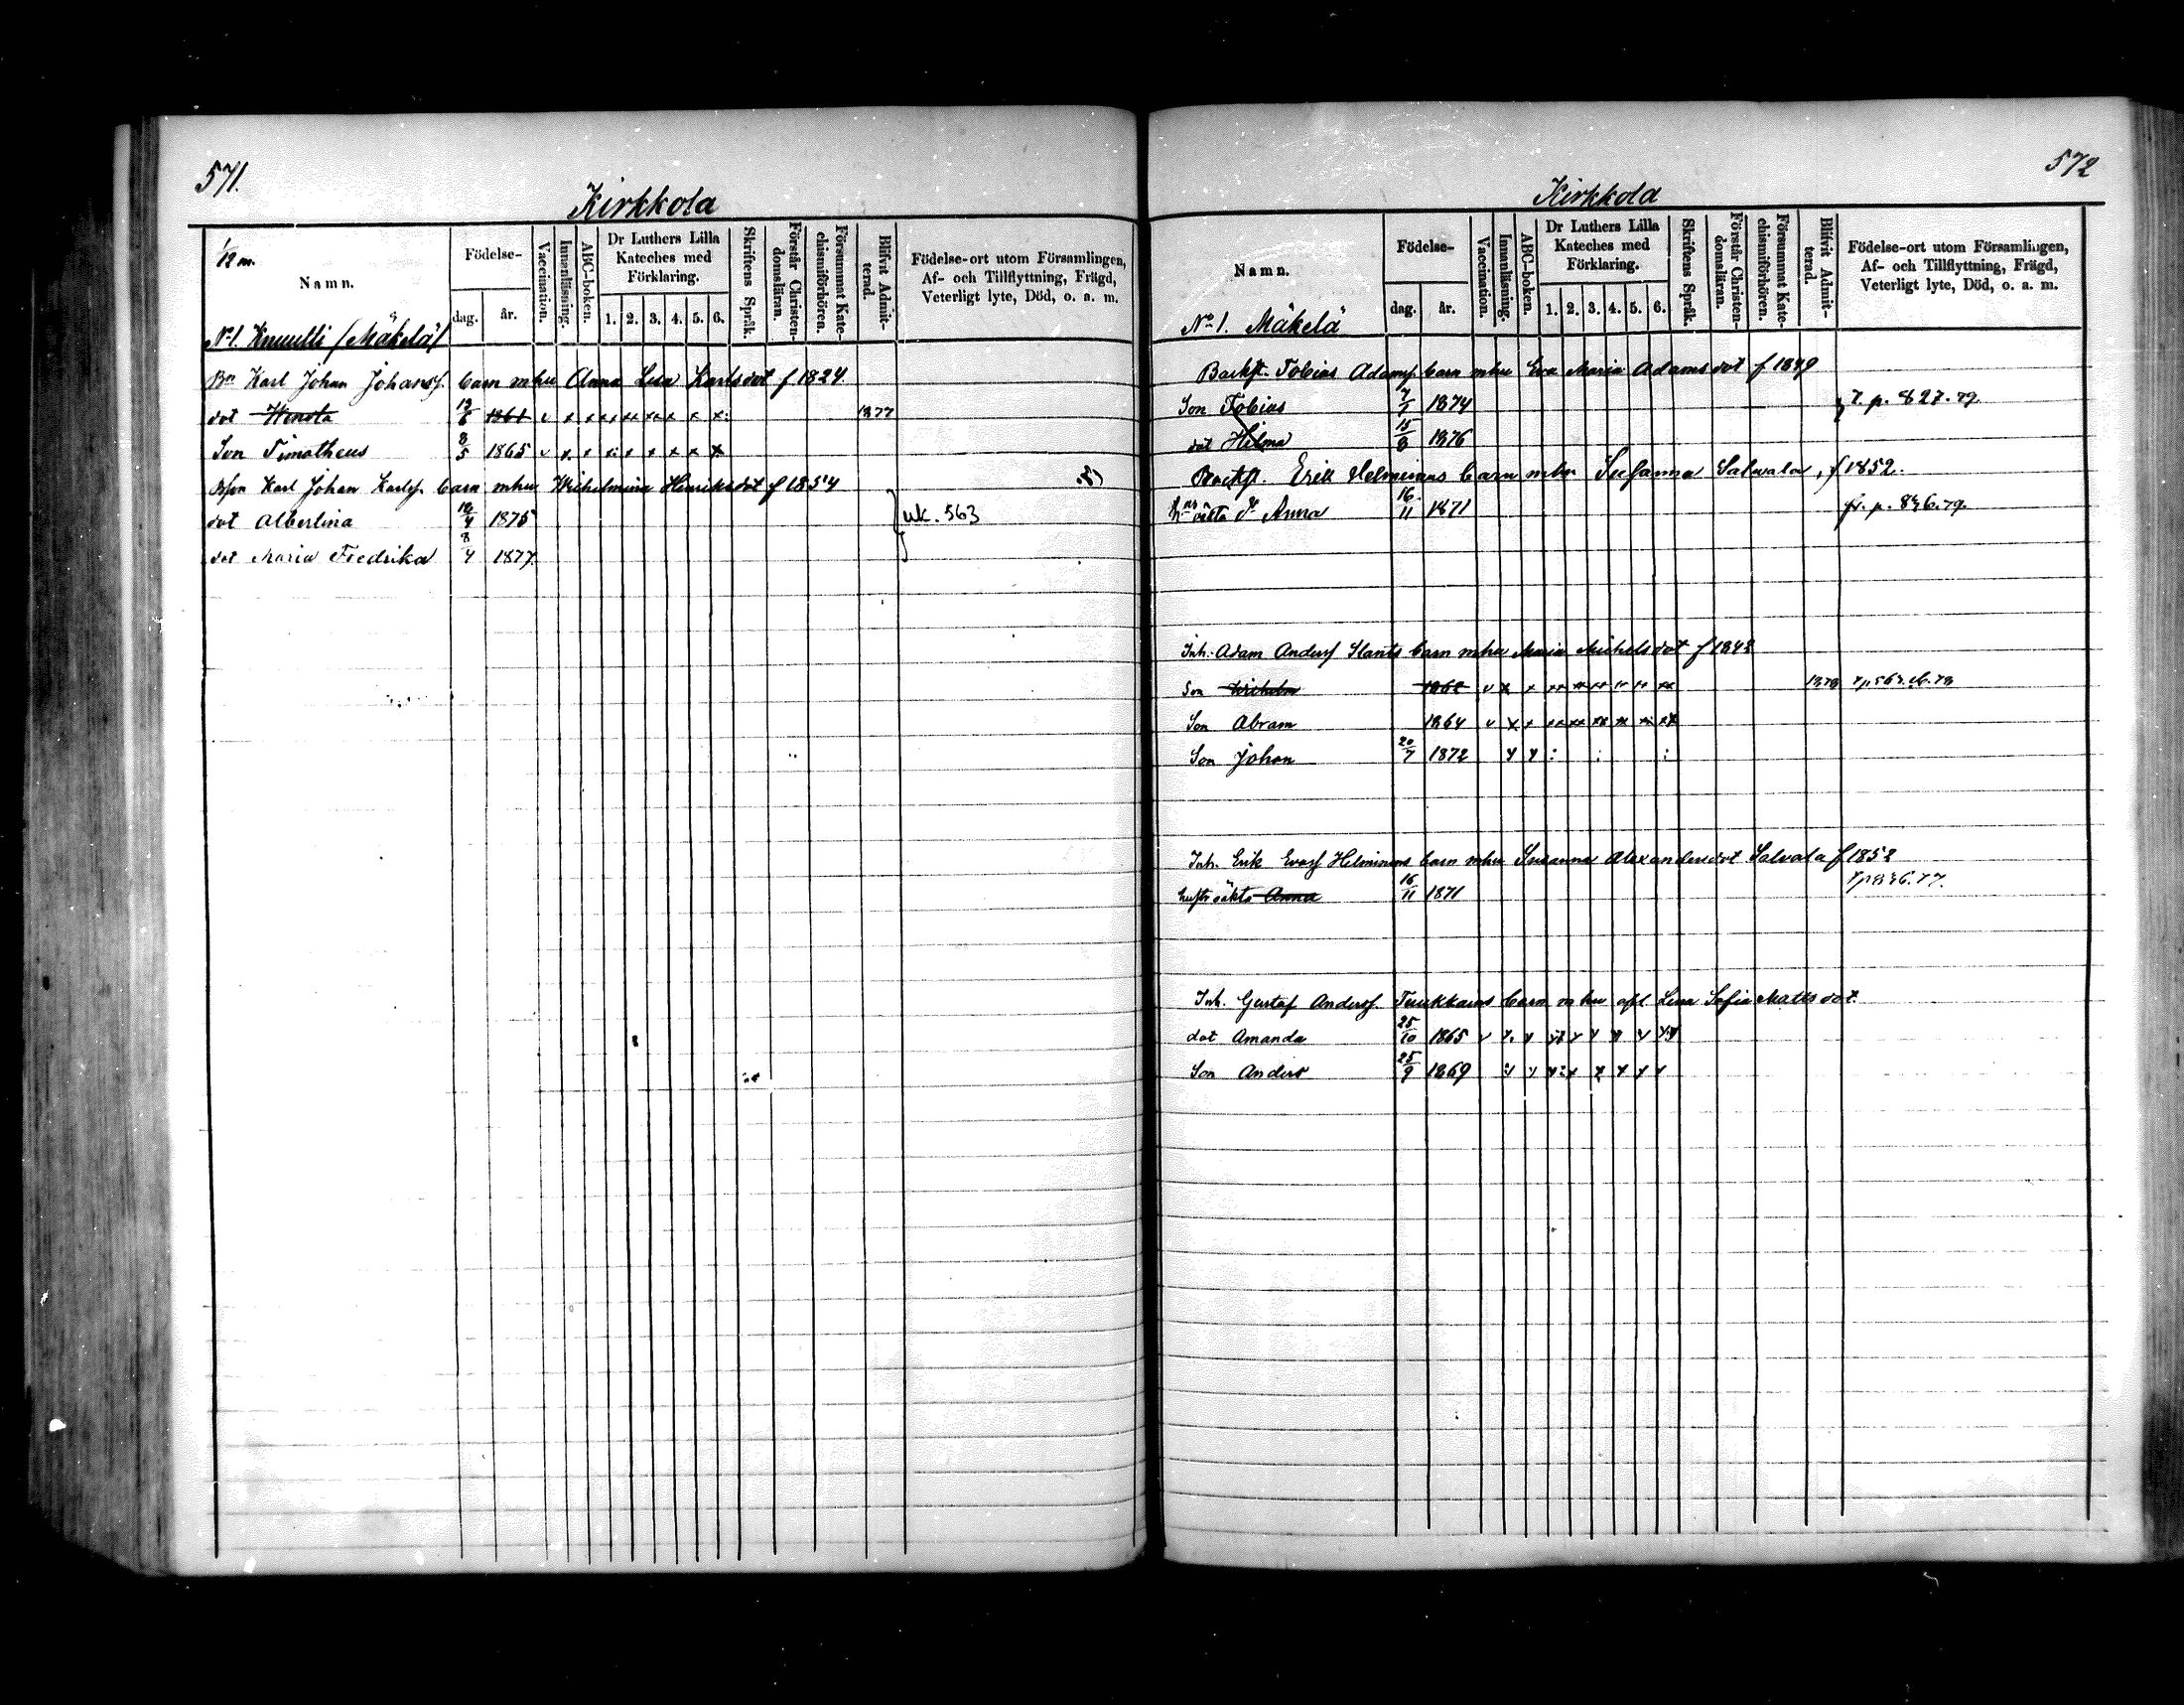 571.
Kirkkola
1/12 m.
Namn.
Födelse-
dag.
år.
Vaccination.
Innanläsning.
ABC-boken.
Dr Luthers Lilla
Kateches med
Förklaring.
1. 2. 3. 4. 5. 6.
Skriftens Språk.
Förstår Christen-
domsläran.
Försummat Kate-
chismiförhören.
Blifvit Admit-
terad.
Födelse-ort utom Församlingen,
Af- och Tillflyttning, Frägd,
Veterligt lyte, Död, o. a. m.
No 1. Knuutti (Mäkelä)
Bn Karl Johan Johansf. barn mhu Anna Lisa Karlsdot f 1824.
dot 12/6 1861 v x x 1877
Son Timotheus 8/5 1865 v x x
Bson Karl Johan Karlsf. barn mhu Wilhelmina Henriksdot f 1854
dot Albertina 1875 uk. 563
dot Maria Fredrika 8/4 1877.
572
Kirkkola
Namn.
Födelse-
dag.
år.
Vaccination.
Innanläsning.
ABC-boken.
Dr Luthers Lilla
Kateches med
Förklaring.
1. 2. 3. 4. 5. 6.
Skriftens Språk.
Förstår Christen-
domsläran.
Försummat Kate-
chismiförhören.
Blifvit Admit-
terad.
Födelse-ort utom Församlingen,
Af- och Tillflyttning, Frägd,
Veterligt lyte, Död, o. a. m.
No 1. Mäkelä
Backst. Tobias Adamsf. barn mhu Eva Maria Adamsdot f 1849
Son Tobias 1874 T. p. 827. 79.
dot Hilma 15/8 1876
Backst. Erik Helminens barn mhu Susanna Salvala, f 1852.
oäkta dr Anna 16/11 1871 fr. p. 836. 79.
Inh. Adam Andersf Slants barn mhu Maria Michelsdot f 1842
Son Wilhelm 1862 v x x 1878
Son Abram 1864 v x x
Son Johan 20/7 1872
Inh. Erik Evasf Helminens barn mhu Susanna Alexandersdot Salvala f 1852
hustr oäkta Anna 16/11 1871
Inh. Gustaf Andersf. barn mhu afl Lisa Sofia Mattsdot.
dot Amanda 25/10 1865
Son Anders 25/9 1869